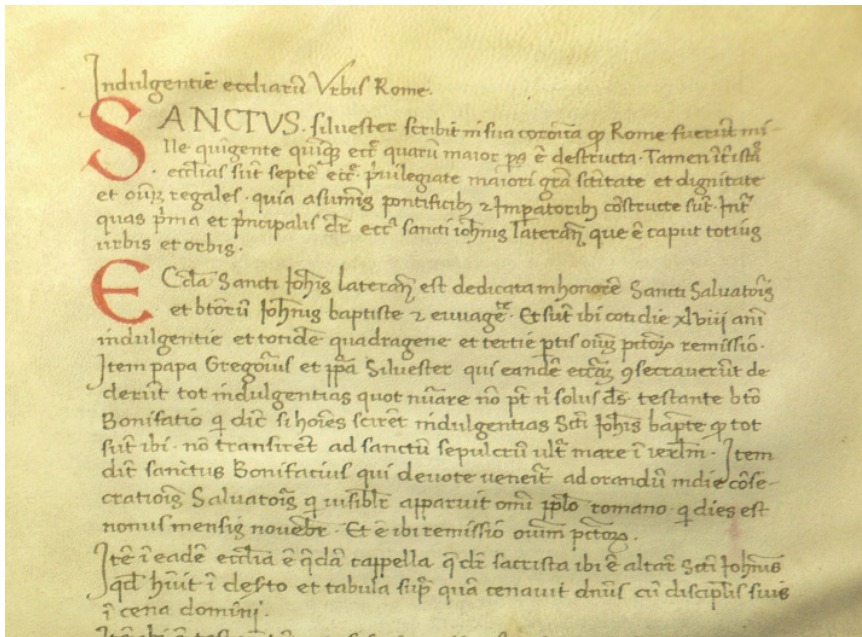 Indulgentiē eccl̄iarū Vrbis Rome.
SANCTVS. siluester scribit in sua coronica qꝫ Rome fuerūt mi-
lle quigente quīqꝫ ecc̄ē quarū maior ps ē destructa. Tamen īt istā
eccl̄ias sūt septē ecc̄ē priuilegiate maiori grā sc̄titate et dignitate
et oūiꝫ regales. quia a sūmis pontificibꝫ ⁊ Imp̄atoribꝫ cōstructe sūt. Int̄
quas p̄ma et p̄ncipalis dr̄ ecc̄a sancti ioh̄nis lateran̄ que ē caput totius
urbis et orbis.
Eccl̄a Sancti Joh̄is lateran̄ est dedicata in honorē Sancti Saluatoris
et bt̄orū Joh̄nis baptiste ⁊ euuāge̅te. Et sūt ibi cotidie xlviij anī
indulgentie et totidē quadragene et tertie p̄tis oūiꝫ pctōꝝ remissio.
Item papa Gregorius et pp̄a Siluester qui eandē eccl̄iaꝫ ꝯsecrauerūt de
derūt tot indulgentias quot nūare nō pt̄ n̄ solus d̄s. testante bt̄o
Bonifatio q̄ dic̄ si hoīes scirēt indulgentias Sc̄ti Joh̄is bapt̄e qꝫ tot
sūt ibi. nō transirēt ad sanctū sepulcrū ult̄ mare ī ierl̄m. Item
dic̄ sanctus Bonifacius qui deuote uenerīt ad orandū in die cōse-
crationis Saluatoris q̄ uisibilr̄ apparuit omī pp̄lo romano. q̄ dies est
nonus mensis nouēbr̄. Et ē ibi remissio oūiūm pctōꝝ.
Itē ī eadē eccl̄ia ē q̄dā cappella q̄ dr̄ sacrista ibi ē altar̄ Sc̄ti Joh̄nis
qd̄ hūit ī deserto et tabula sup̄ quā cenauit dn̄us cū discipl̄is suis
ī cena dominj.